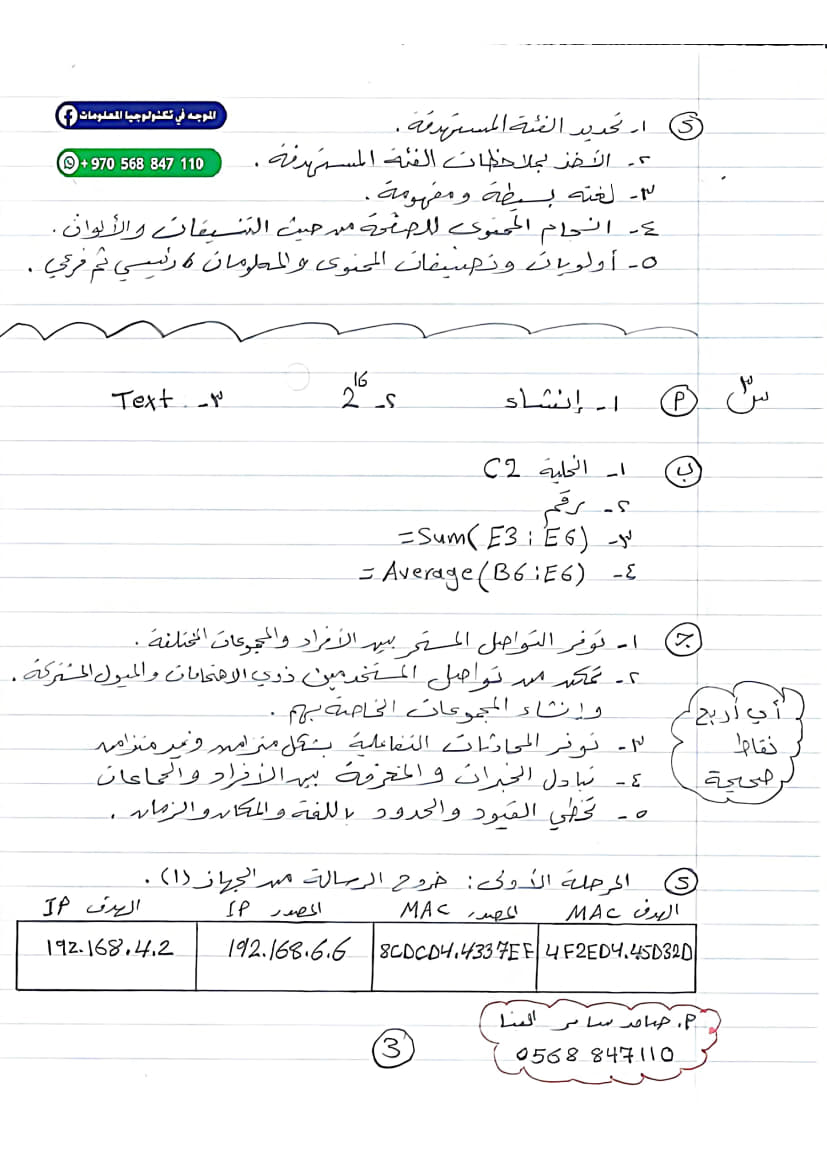 الموجه في تكنولوجيا المعلومات
+ 970 568 847 110
د ١- تحديد الفئة المستهدفة.
٢- الأخذ بملاحظات الفئة المستهدفة.
٣- لغته بسيطة ومفهومة.
٤- انسجام المحتوى للصفحة من حيث التنسيقات والألوان.
٥- أولويات وتصنيفات المحتوى والمعلومات، رئيسي ثم فرعي.
س٣ أ ١- إنشاء ٢- 2^16 ٣- Text
ب ١- الخلية C2
٢- رقم
٣- =Sum(E3:E6)
٤- =Average(B6:E6)
ج ١- توفر التواصل المستمر بين الأفراد والمجموعات المختلفة.
٢- تمكن من تواصل المستخدمين ذوي الاهتمامات والميول المشتركة.
وإنشاء المجموعات الخاصة بهم.
٣- توفر المحادثات التفاعلية بشكل متزامن وغير متزامن
٤- تبادل الخبرات والمعرفة بين الأفراد والجماعات
٥- تخطي القيود والحدود باللغة والمكان والزمان.
أي أربع
نقاط
صحيحة
د المرحلة الأولى: خروج الرسالة من الجهاز (١).
الهدف MAC المصدر MAC المصدر IP الهدف IP
4F2ED4.45D32D 8CDCD4.4337EF 192.168.6.6 192.168.4.2
أ. سامر
0568 847110
3